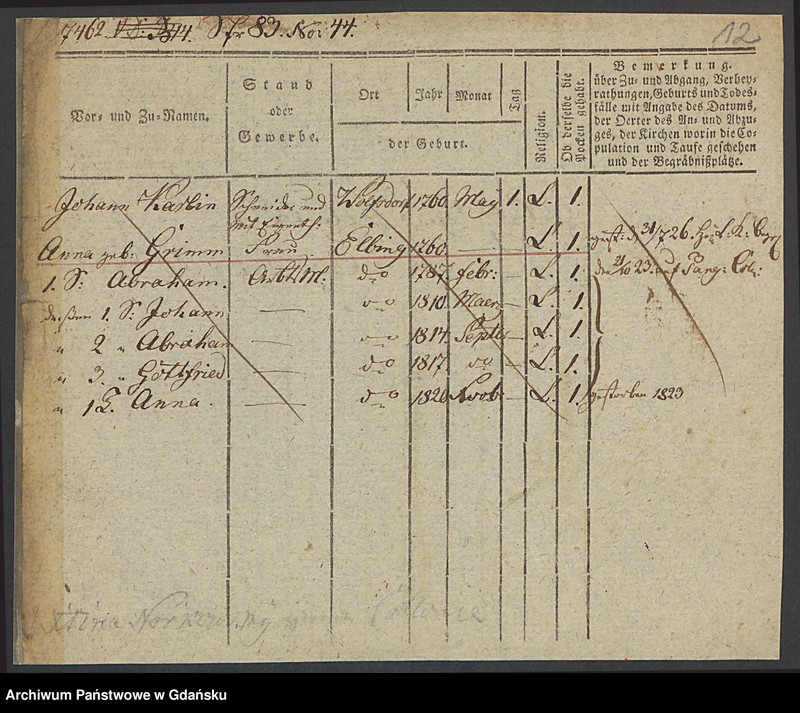 7462 Str 83. No: 44.
12
Vor- und Zu-Namen.
Stand oder Gewerbe.
Ort
Jahr
Monat
Tag
der Geburt.
Religion.
Ob derselbe die Pocken gehabt.
Bemerkung.
über Zu- und Abgang, Verhey-
rathungen, Geburts und Todes-
fälle mit Angabe des Datums,
der Oerter des An- und Abzu-
ges, der Kirchen worin die Co-
pulation und Taufe geschehen
und der Begräbnißplätze.
Johann Karbin Schneider und Wolfsdorf 1760. May 1. L. 1.
mit Eigenth:
Anna geb: Grimm Frau Elbing 1760. — L. 1.
1. S: Abraham. Arbtsm. do 1787. febr: — L. 1.
deßen 1. S: Johann — do 1810. Maerz — L. 1.
" 2 " Abraham — do 1814. Septe — L. 1.
" 3. " Gottfried — do 1817. do — L. 1.
" 1 T. Anna. — do 1820. Novb — L. 1. gestorben 1823
Archiwum Państwowe w Gdańsku